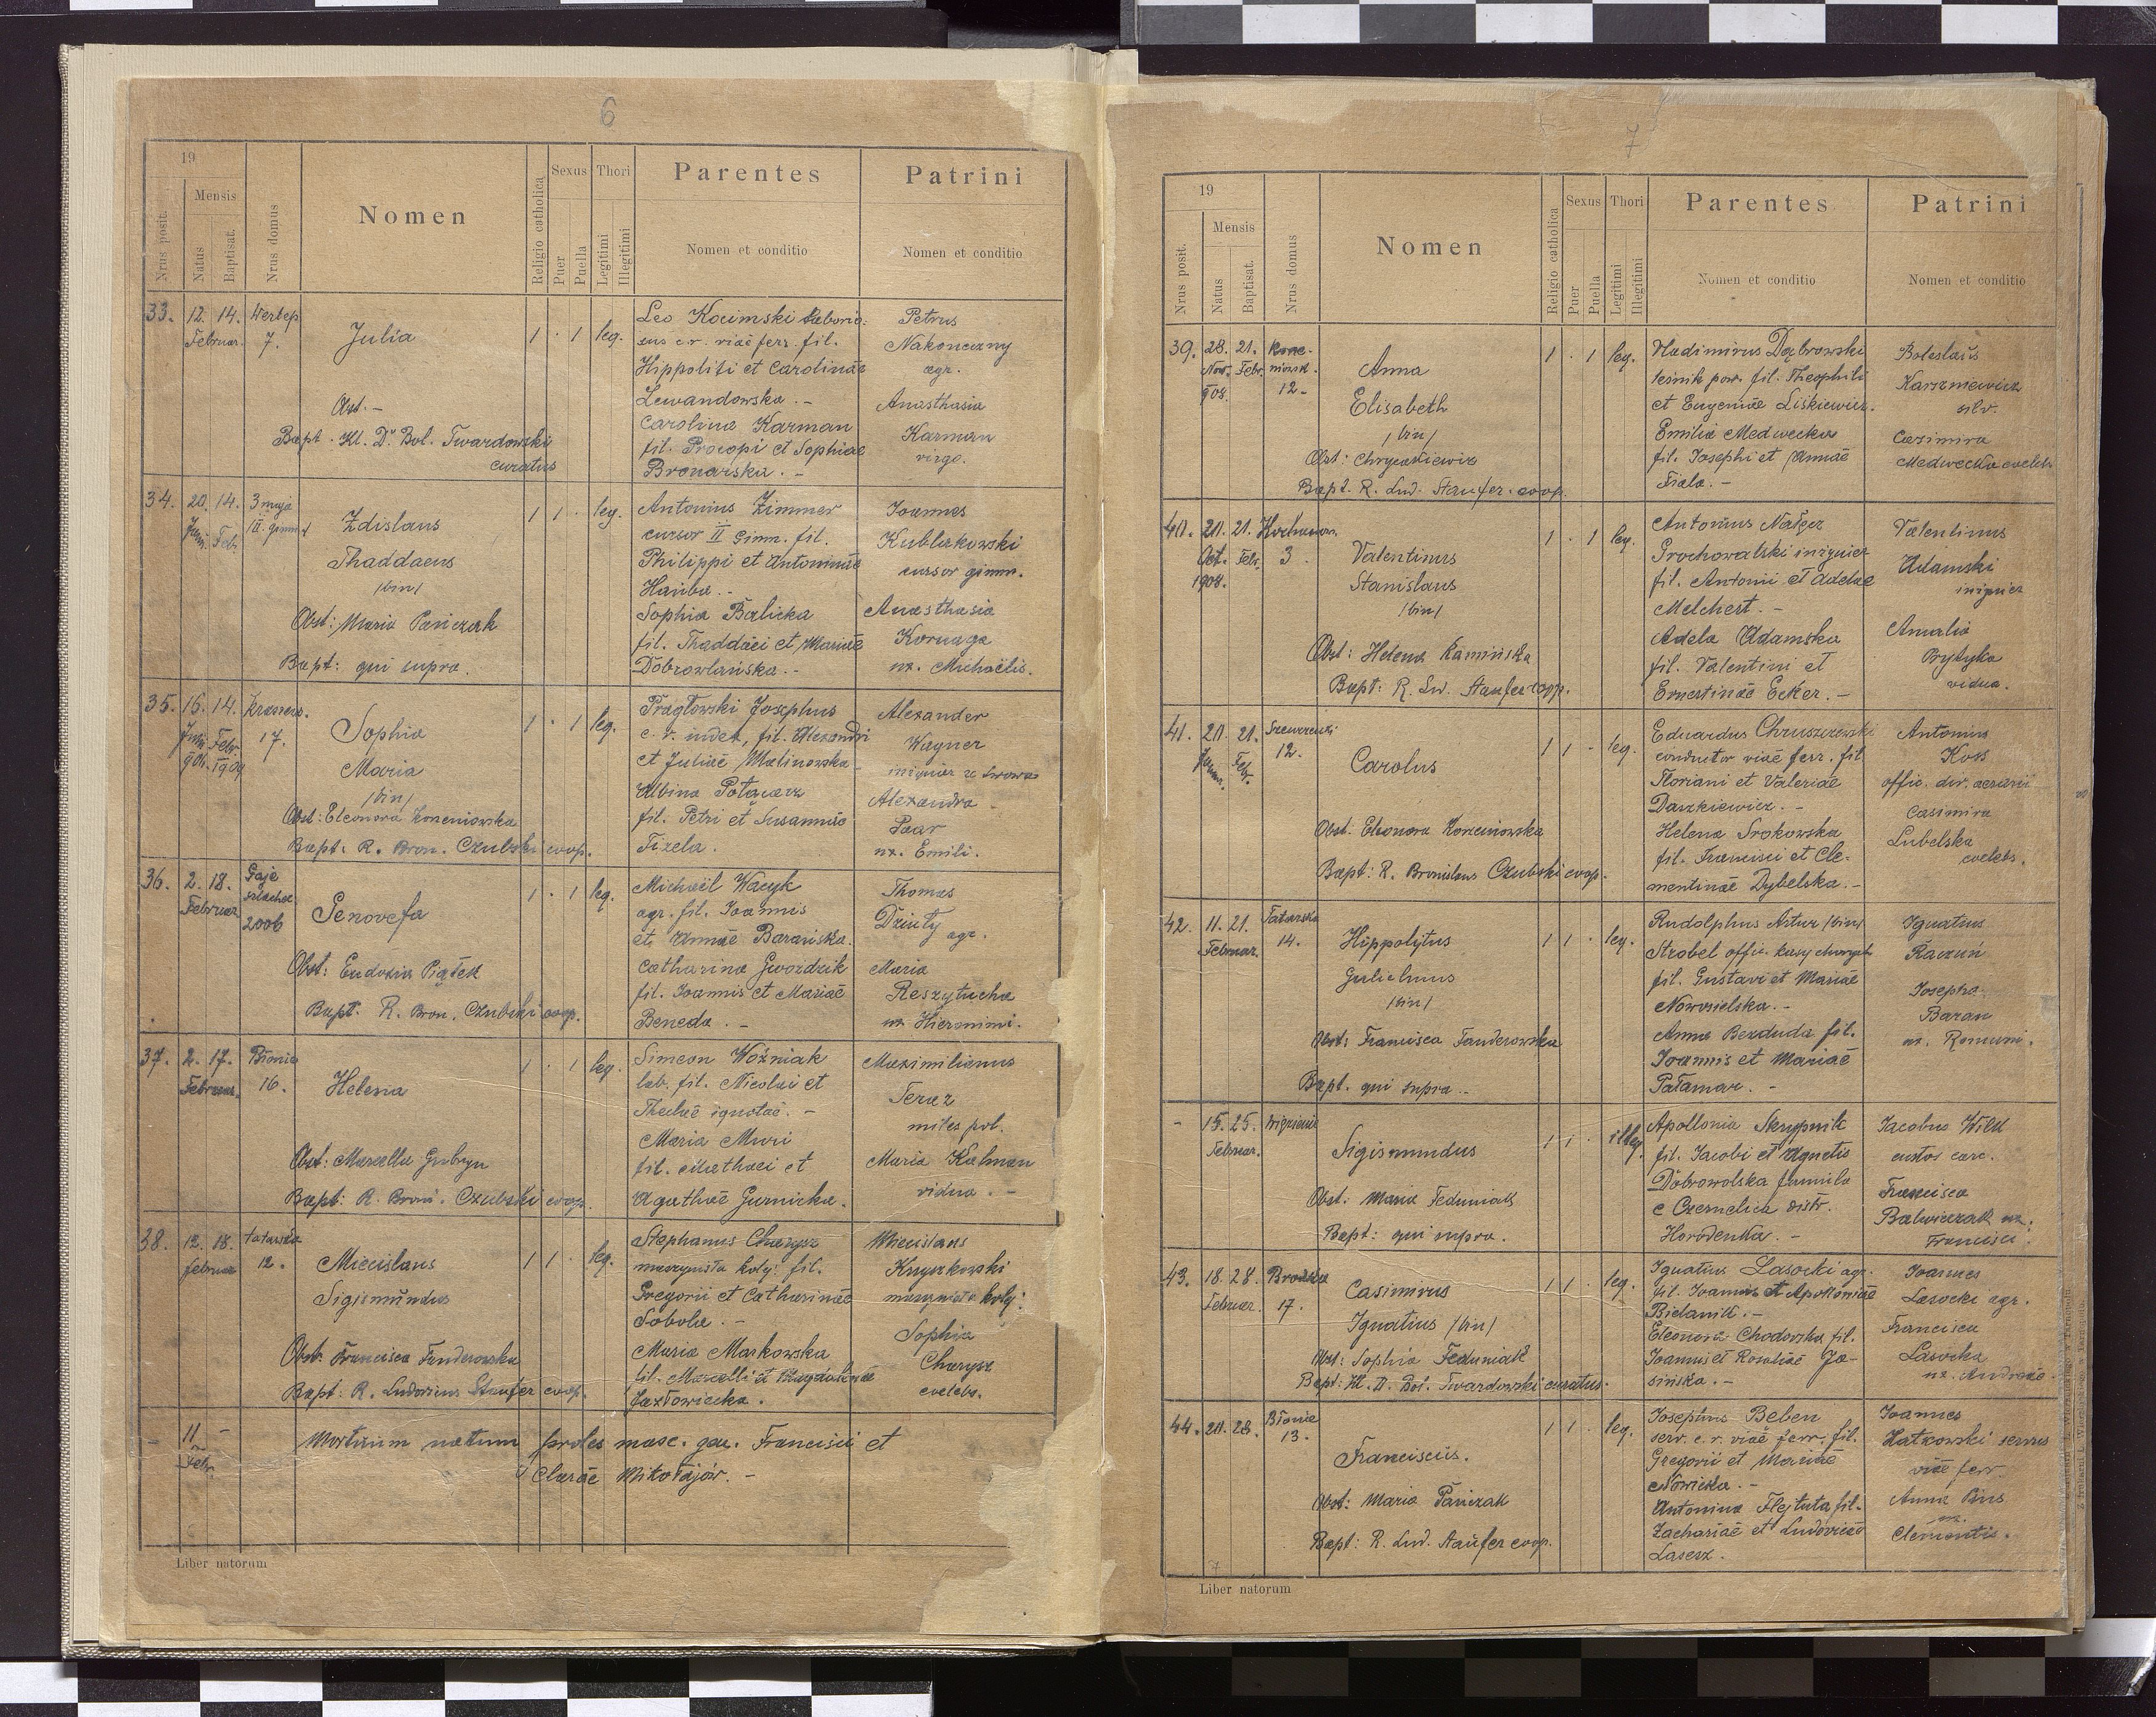 6
19
Nrus posit.
Mensis
Natus
Baptisat.
Nrus domus
Nomen
Religio catholica
Sexus
Puer
Puella
Thori
Legitimi
Illegitimi
Parentes
Nomen et conditio
Patrini
Nomen et conditio
33. 12. 14. Wertep
Februar. 7.
Julia
1 . 1 leg.
Obst. -
Bapt. Kl. Dr. Bol. Twardowski
curatus
Leo Kocimski
c. r. viae ferr. fil.
Hippoliti et Carolinae
Lewandowska. -
Carolina Karman
fil. Procopi et Sophiae
Petrus
Nakoneczny
agr.
Anasthasia
Karman
virgo.
34. 20. 14. 3 maja
Febr. III. gimn.
Zdislaus
Thaddaeus
/bin/
1 1 . leg.
Obst: Maria Pańczak
Bapt: qui supra.
Antonius Zimmer
cursor II Gimn. fil.
Philippi et Antoninae
Sophia Balicka
fil. Thaddaei et Mariae
Dobrowlańska. -
Joannes
cursor gimn.
Anasthasia
Kornaga
ux. Michaëlis.
35. 16. 14.
Febr. 17.
908. 1909
Sophia
Maria
/bin/
1 . 1 leg.
Obst: Eleonora Korzeniowska
Bapt: R. Bron. Czubski coop.
Pragłowski Josephus
fil. Alexandri
et Juliae Malinowska
Albina
fil. Petri et Susannae
Fizela.
Alexander
Wagner
inżynier ze Lwowa
Alexandra
Paar
ux. Emili.
36. 2. 18. Gaje
Februar. szlachec.
2006
Genovefa
1 . 1 leg.
Obst: Eudoxia Piątek
Bapt. R. Bron. Czubski coop.
Michaël Wacyk
agr. fil. Joannis
et Annae Barańska.
Catharina Gwoździk
fil. Joannis et Mariae
Beneda. -
Thomas
agr.
Maria
Reszytucha
ux. Hieronimi.
37. 2. 17. Błonie
Februar. 16.
Helena
1 . 1 leg.
Obst: Marcella
Bapt: R. Bron. Czubski coop.
Simeon Woźniak
lab. fil. Nicolai et
Theclae ignotae. -
Maria Muri
fil. Mathaei et
Agathae Gurnicka.
Maximilianus
Teraz
miles pol.
Maria Kalman
vidua. -
38. 12. 18. tatarska
februar 12.
Miecislaus
Sigismundus
1 1 . leg.
Obst: Francisca Fanderowska
Bapt: R. Ludovicus Staufer coop.
Stephanus Charysz
maszynista kolej. fil.
Gregorii et Catharinae
Sobola. -
Maria Markowska
fil. Marcelli et
Jazłowiecka.
Miecislaus
Knyszkowski
maszynista kolej.
Sophia
Charysz
coelebs.
- 11 -
Febr.
Mortuum natum proles masc. gen. Francisci et
Clarae Mikołajów. -
Liber natorum
7
19
Nrus posit.
Mensis
Natus
Baptisat.
Nrus domus
Nomen
Religio catholica
Sexus
Puer
Puella
Thori
Legitimi
Illegitimi
Parentes
Nomen et conditio
Patrini
Nomen et conditio
39. 28. 21.
Nov. Febr.
908. 12.
Anna
Elisabeth
/bin/
1 . 1 leg.
Obst:
Bapt. R. Lud. Staufer. coop.
Vladimirus Dąbrowski
leśnik pow. fil. Theophili
et Eugeniae Liskiewicz.
Emilia Medwecka
fil. Josephi et Annae
Fiala. -
Boleslaus
silv.
Casimira
Medwecka coelebs
40. 20. 21.
Oct. Febr. 3.
1908.
Valentinus
Stanislaus
/bin/
1 . 1 leg.
Obst: Helena Kamińska
Bapt: R. Lud. Staufer coop.
Antonius
Grochowalski inżynier
fil. Antonii et Adelae
Melchert. -
Adela Adamska
fil. Valentini et
Ernestinae Ecker. -
Valentinus
Adamski
inżynier
Amalia
Prytyka
vidua.
41. 20. 21.
Januar. Febr. 12.
Carolus
1 1 . leg.
Obst. Eleonora Korzeniowska
Bapt: R. Bronislaus Czubski coop.
Eduardus Chruszczewski
conductor viae ferr. fil.
Floriani et Valeriae
Daszkiewicz. -
Helena Srokowska
fil. Francisci et Cle-
mentinae Dybelska. -
Antonius
Koss
offic. dir. aerarii
Casimira
Lubelska
coelebs.
42. 11. 21. Tatarska
Februar. 14.
Hippolytus
Gulielmus
/bin/
1 1 . leg.
Obst: Francisca Fanderowska
Bapt. qui supra. -
Rudolphus Artur /bin/
Strobel offic. kasy chorych
fil. Gustavi et Mariae
Nowosielska. -
Anna Bezduda fil.
Joannis et Mariae
Pałamar. -
Ignatius
Josepha
Baran
ux. Romani.
- 15. 25. więzienie
Februar.
Sigismundus
1 1 . illeg.
Obst: Maria Feduniak
Bapt: qui supra.
Apollonia Skrypnik
fil. Jacobi et Agnetis
Dobrowolska famula
e Czernelica distr.
Horodenka. -
Jacobus Wilk
custos carc.
Francisca
Balwiczak ux.
Francisci.
43. 18. 28. Brodzka
Februar. 17.
Casimirus
Ignatius /bin/
1 1 . leg.
Obst: Sophia Feduniak
Bapt: Kl. D. Bol. Twardowski curatus.
Ignatius Lasocki agr.
fil. Joannis et Apolloniae
Bielanik. -
Eleonora Chodorska fil.
Joannis et Rosaliae Ja-
sińska. -
Joannes
Lasocki agr.
Francisca
Lasocka
ux. Andreae.
44. 20. 28. Błonie
13.
Franciscus.
1 1 . leg.
Obst: Maria Pańczak
Bapt: R. Lud. Staufer coop.
Josephus Beben
serv. c. r. viae ferr. fil.
Gregorii et Mariae
Nowicka. -
Antonina Flejtuta fil.
Zachariae et Ludovicae
Lasesz.
Joannes
Zatkowski servus
viae ferr.
Anna Pius
ux.
Clementis.
Liber natorum